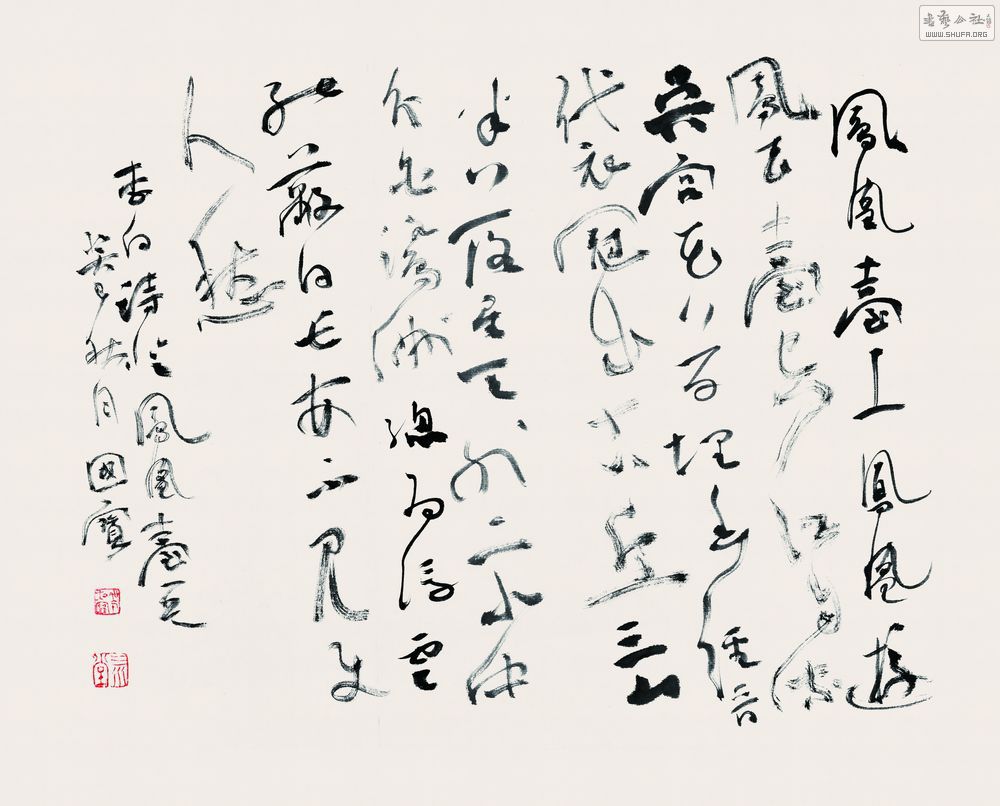 鳳凰臺上鳳凰遊
鳳去臺空江自流
吳宮花草埋幽徑晉
代衣冠成古丘三山
半落青天外二水中
分白鷺洲總為浮雲
能蔽日長安不見使
人愁
李白詩鳳凰臺一首
癸巳秋月國寶
書藝公社
WWW.SHUFA.ORG